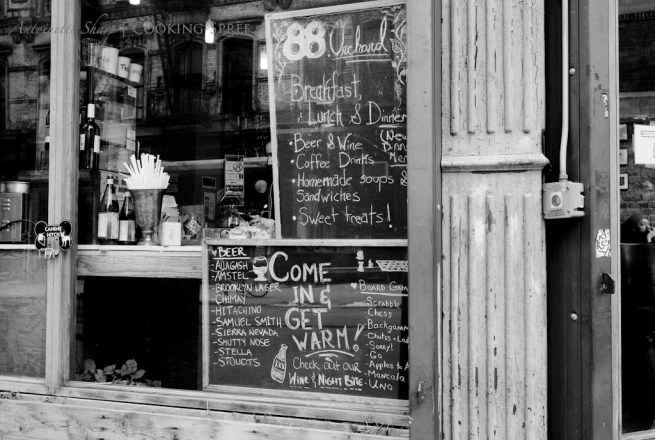 Antoinette | COOKING SPREE
88 Orchard
Breakfast,
Lunch & Dinner
(New
Dinner
Men
• Beer & Wine
• Coffee Drinks
• Homemade soups &
Sandwiches
• Sweet treats!
CANINE
HITCH
♥ BEER
- ALLAGASH
- AMSTEL
- BROOKLYN LAGER
- CHIMAY
- HITACHINO
- SAMUEL SMITH
- SIERRA NEVADA
- SMUTTY NOSE
- STELLA
- STOUDTS
COME
IN &
GET
WARM!
Check out our
WINE & NIGHT BITE
♥ BOARD GAM
- Scrabble
- Chess
- Backgamm
- Chutes & Lad
- Sorry!
- Go
- Apples to A
- Mancala
- Uno